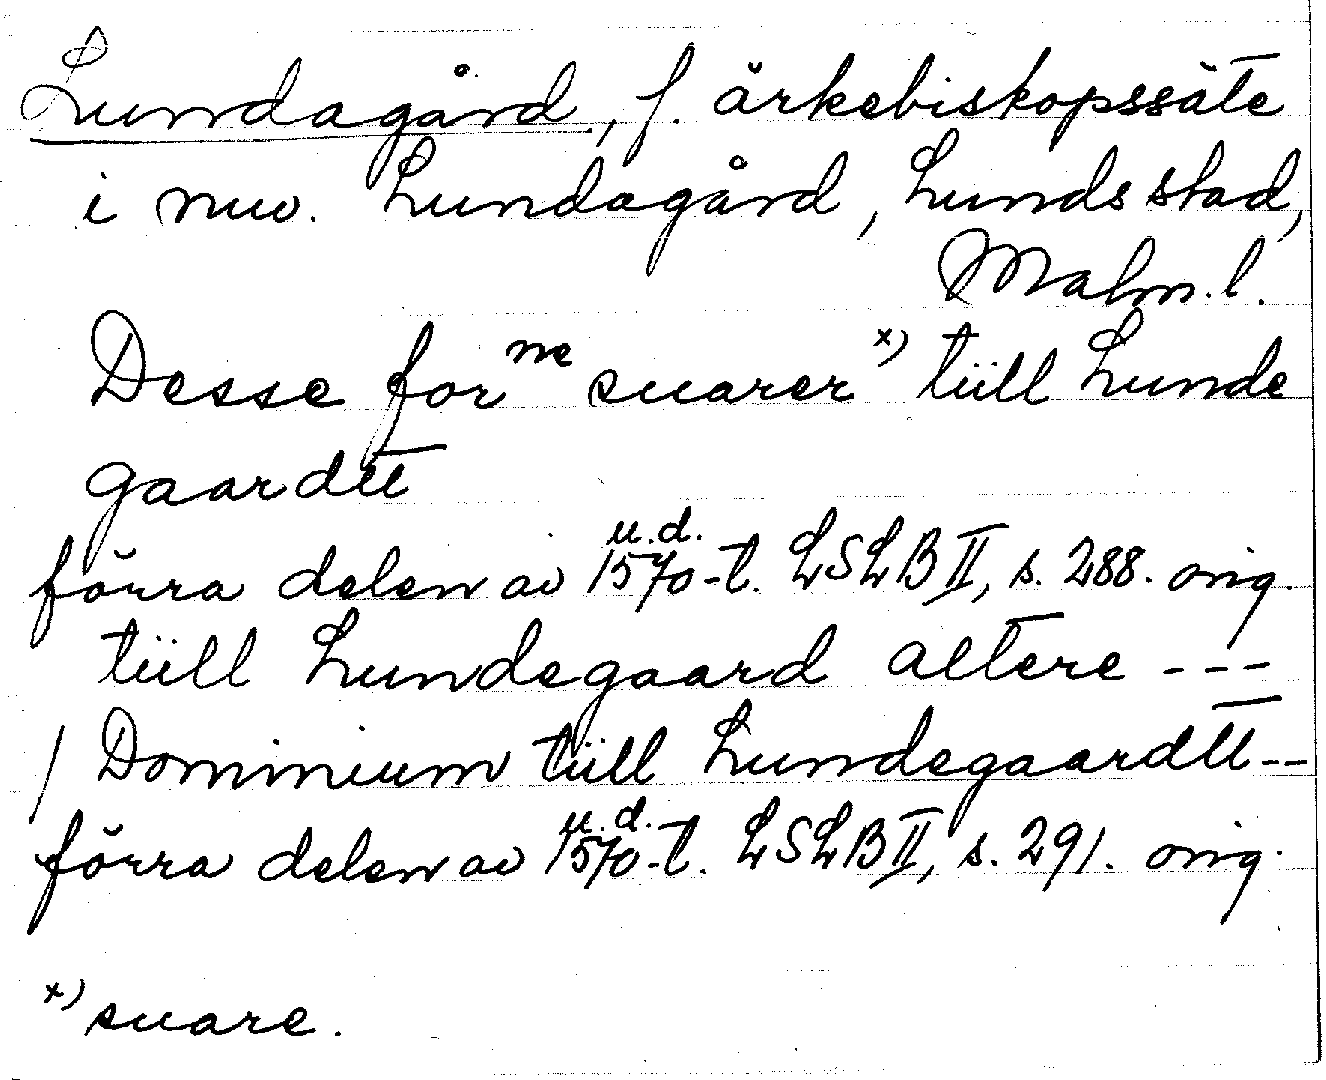 Lundagård, f. ärkebiskopssäte
i nuv. Lundagård, Lunds stad,
Malm. l.
Desse for ne suarer x) tiill Lunde
gaardtt
förra delen av 1570-t. u.d. LSLB II, s. 288. orig.
tiill Lundegaard altere ---
/ Dominium tiill Lundegaardtt --
förra delen av 1570-t. u.d. LSLB II, s. 291. orig.
x) suare.